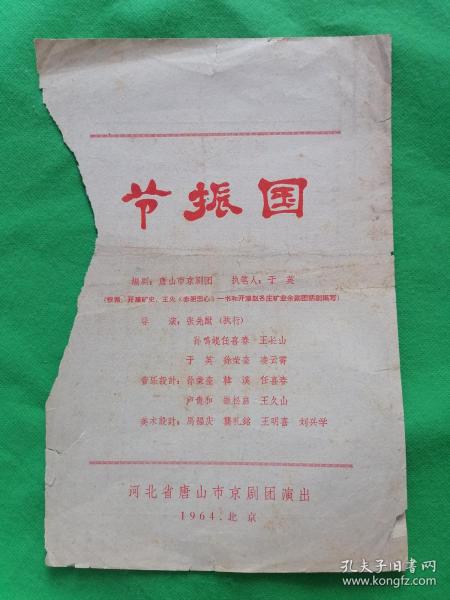 节振国
编剧：唐山市京剧团 执笔人：于英
(根据：开滦矿史、王火《赤胆忠心》一书和开滦赵各庄矿业余剧团话剧编写)
导 演：张先猷（执行）
孙鸣岐 任喜春 王长山
于英 徐荣奎 凌云霄
音乐設計：徐荣奎 韓溪 任喜春
卢貴和 张松嵐 王久山
美术設計：馬福庆 龔礼銘 王明喜 刘兴学
河北省唐山市京剧团演出
1964.北京
孔夫子旧书网
www.kongfz.com